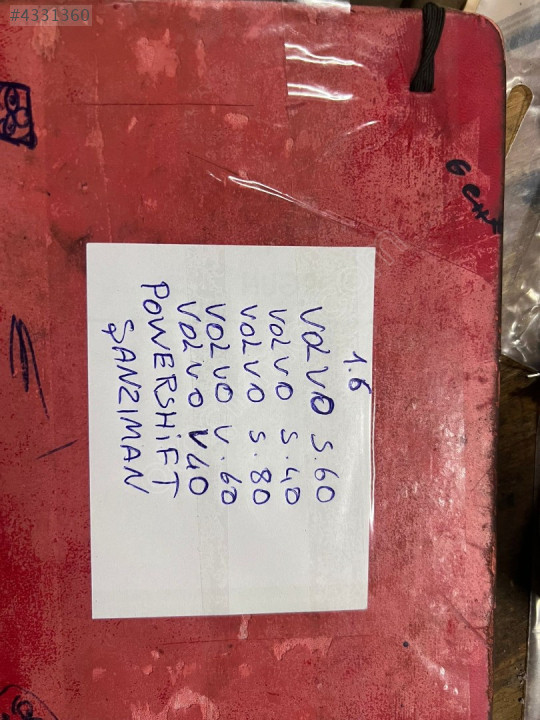 #4331360
1.6
VOLVO S.60
VOLVO S.40
VOLVO S.80
VOLVO V.60
VOLVO V40
POWERSHiFT
ŞANZIMAN